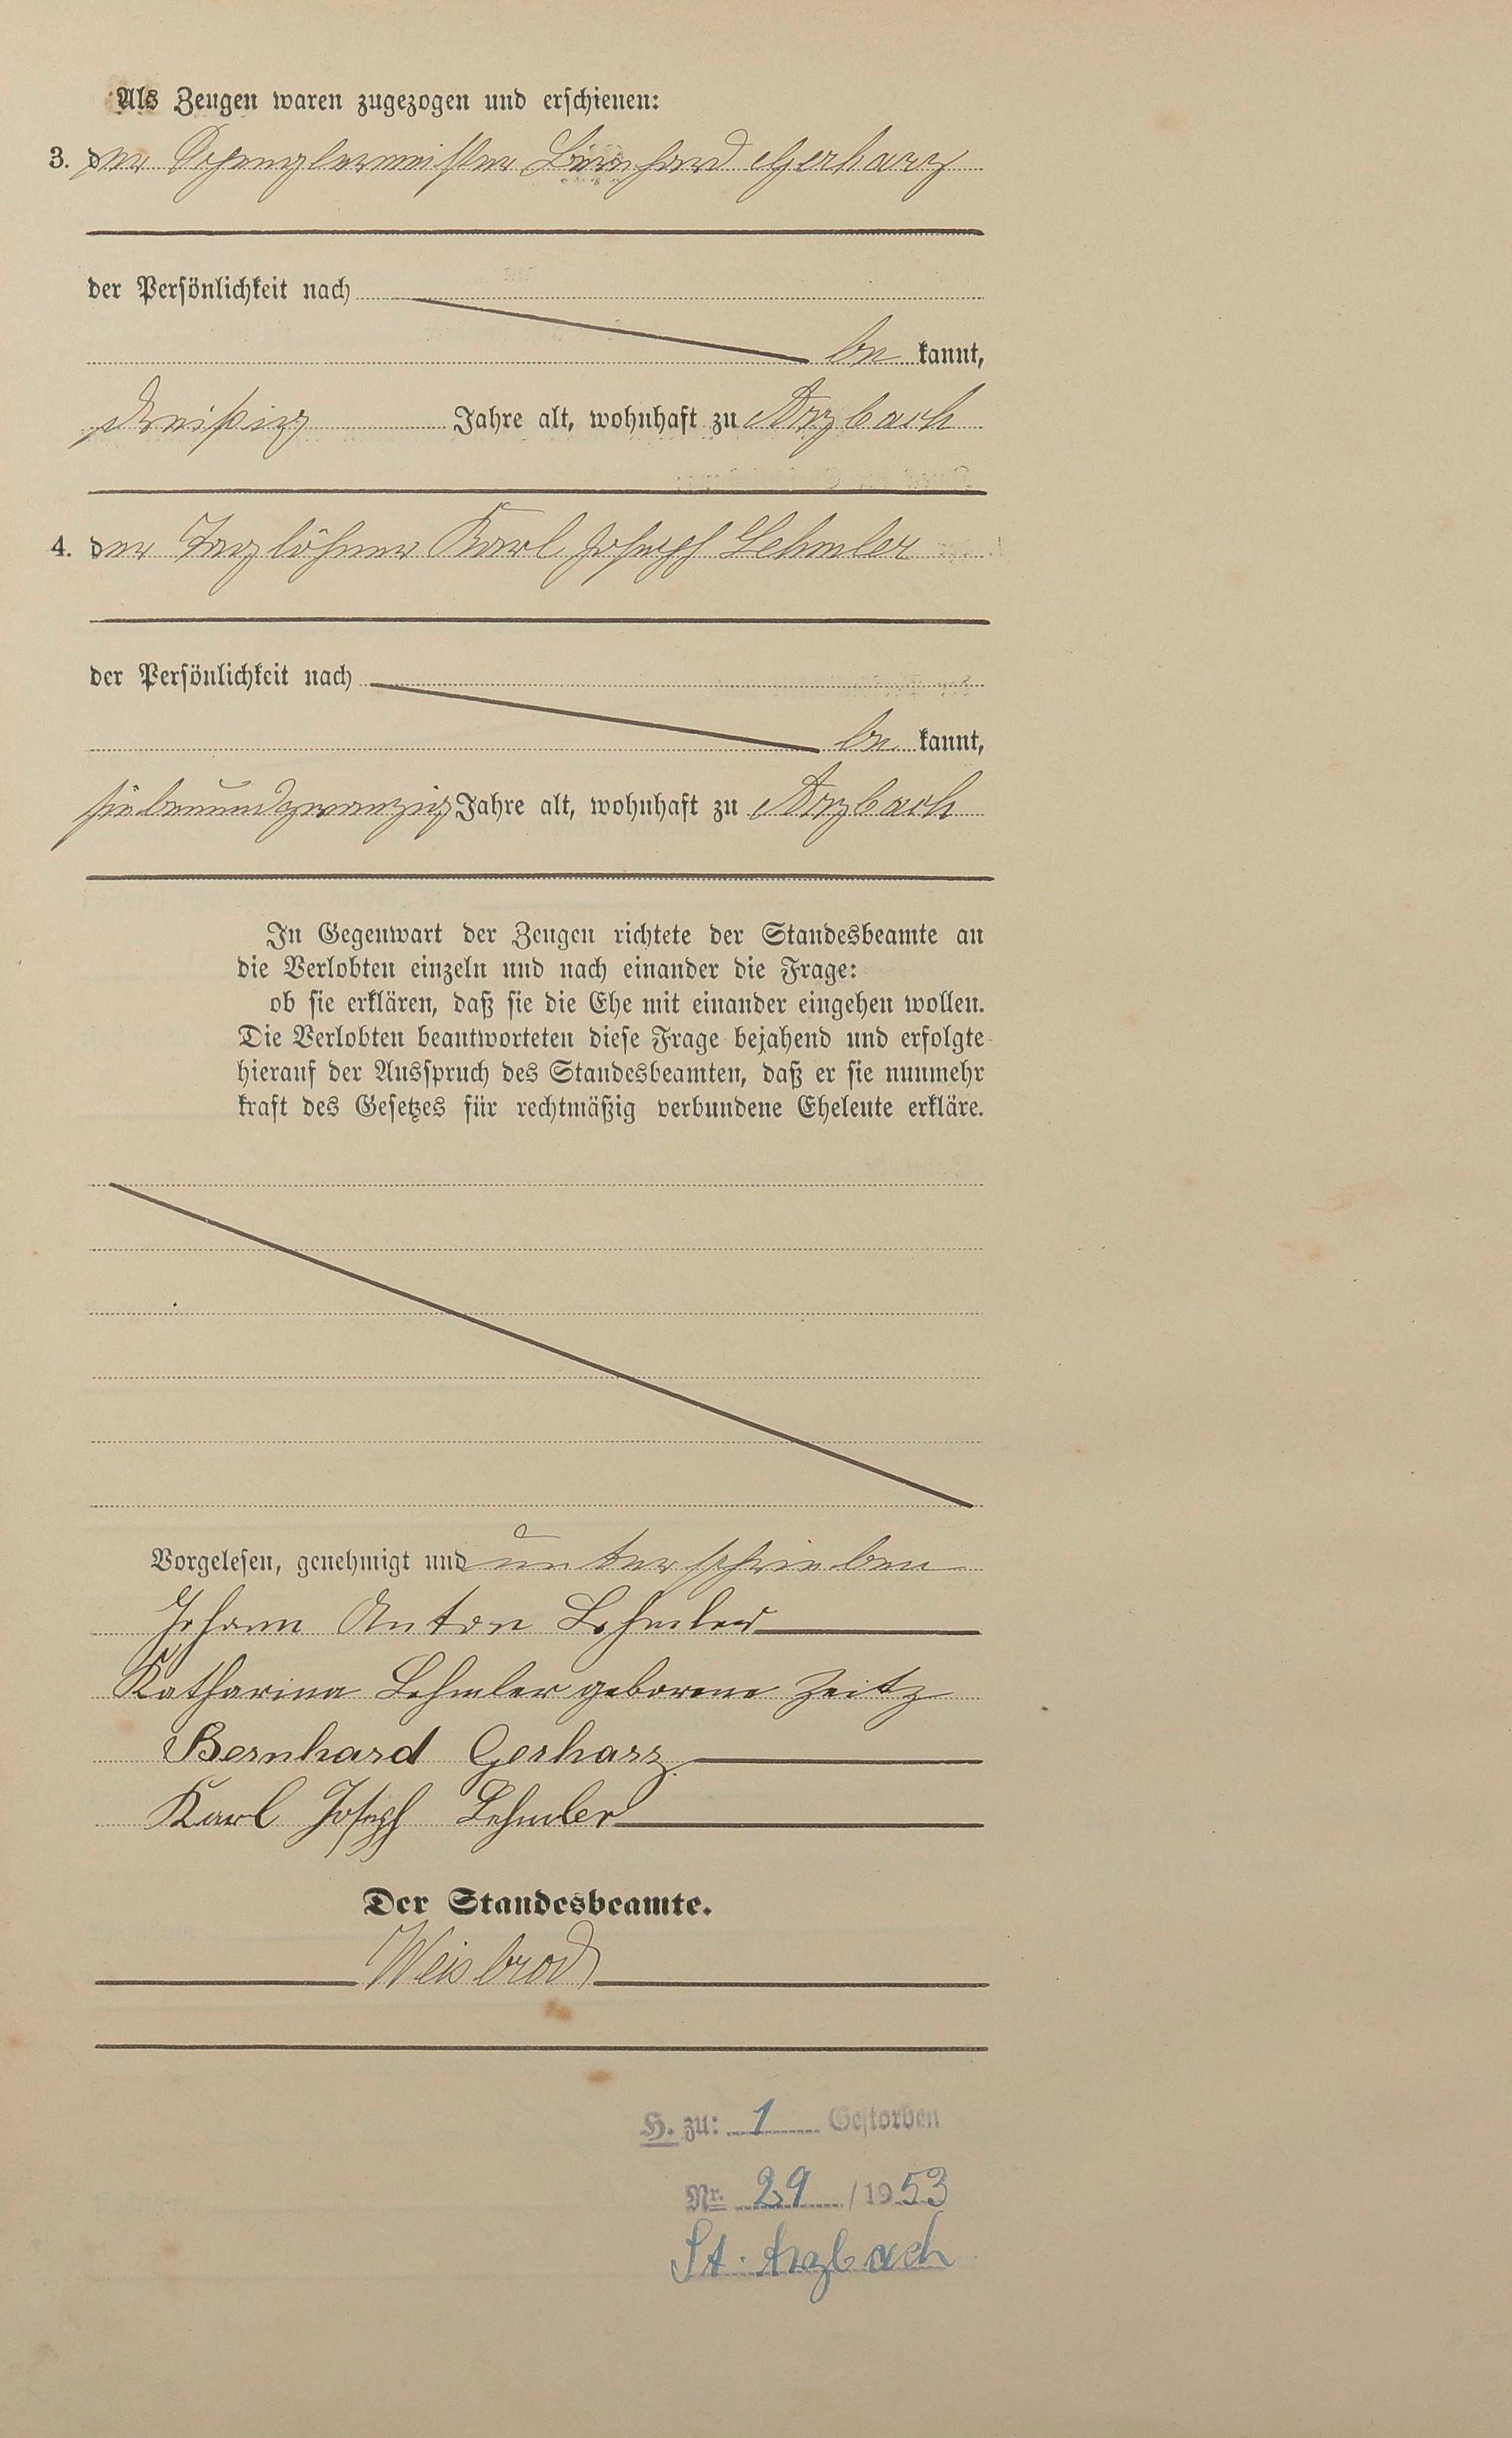 Als Zeugen waren zugezogen und erschienen:
3. der Spenglermeister Bernhard Gerharz
der Persönlichkeit nach
be kannt,
dreißig Jahre alt, wohnhaft zu Arzbach
4. der Taglöhner Karl Joseph Lehmler
der Persönlichkeit nach
be kannt,
siebenundzwanzig Jahre alt, wohnhaft zu Arzbach
In Gegenwart der Zeugen richtete der Standesbeamte an
die Verlobten einzeln und nach einander die Frage:
ob sie erklären, daß sie die Ehe mit einander eingehen wollen.
Die Verlobten beantworteten diese Frage bejahend und erfolgte
hierauf der Ausspruch des Standesbeamten, daß er sie nunmehr
kraft des Gesetzes für rechtmäßig verbundene Eheleute erkläre.
Vorgelesen, genehmigt und unterschrieben
Johann Anton Lehmler
Katharina Lehmler geborene Zeitz
Bernhard Gerharz
Karl Joseph Lehmler
Der Standesbeamte.
Weisbrod
H. zu: 1 Gestorben
Nr. 29 /1953
St. Arzbach